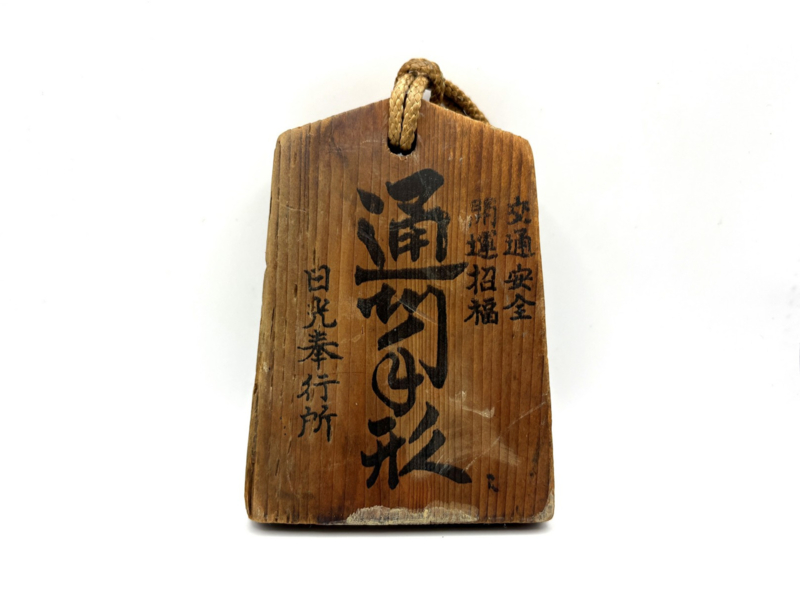 交通安全
開運招福
通行手形
日光奉行所